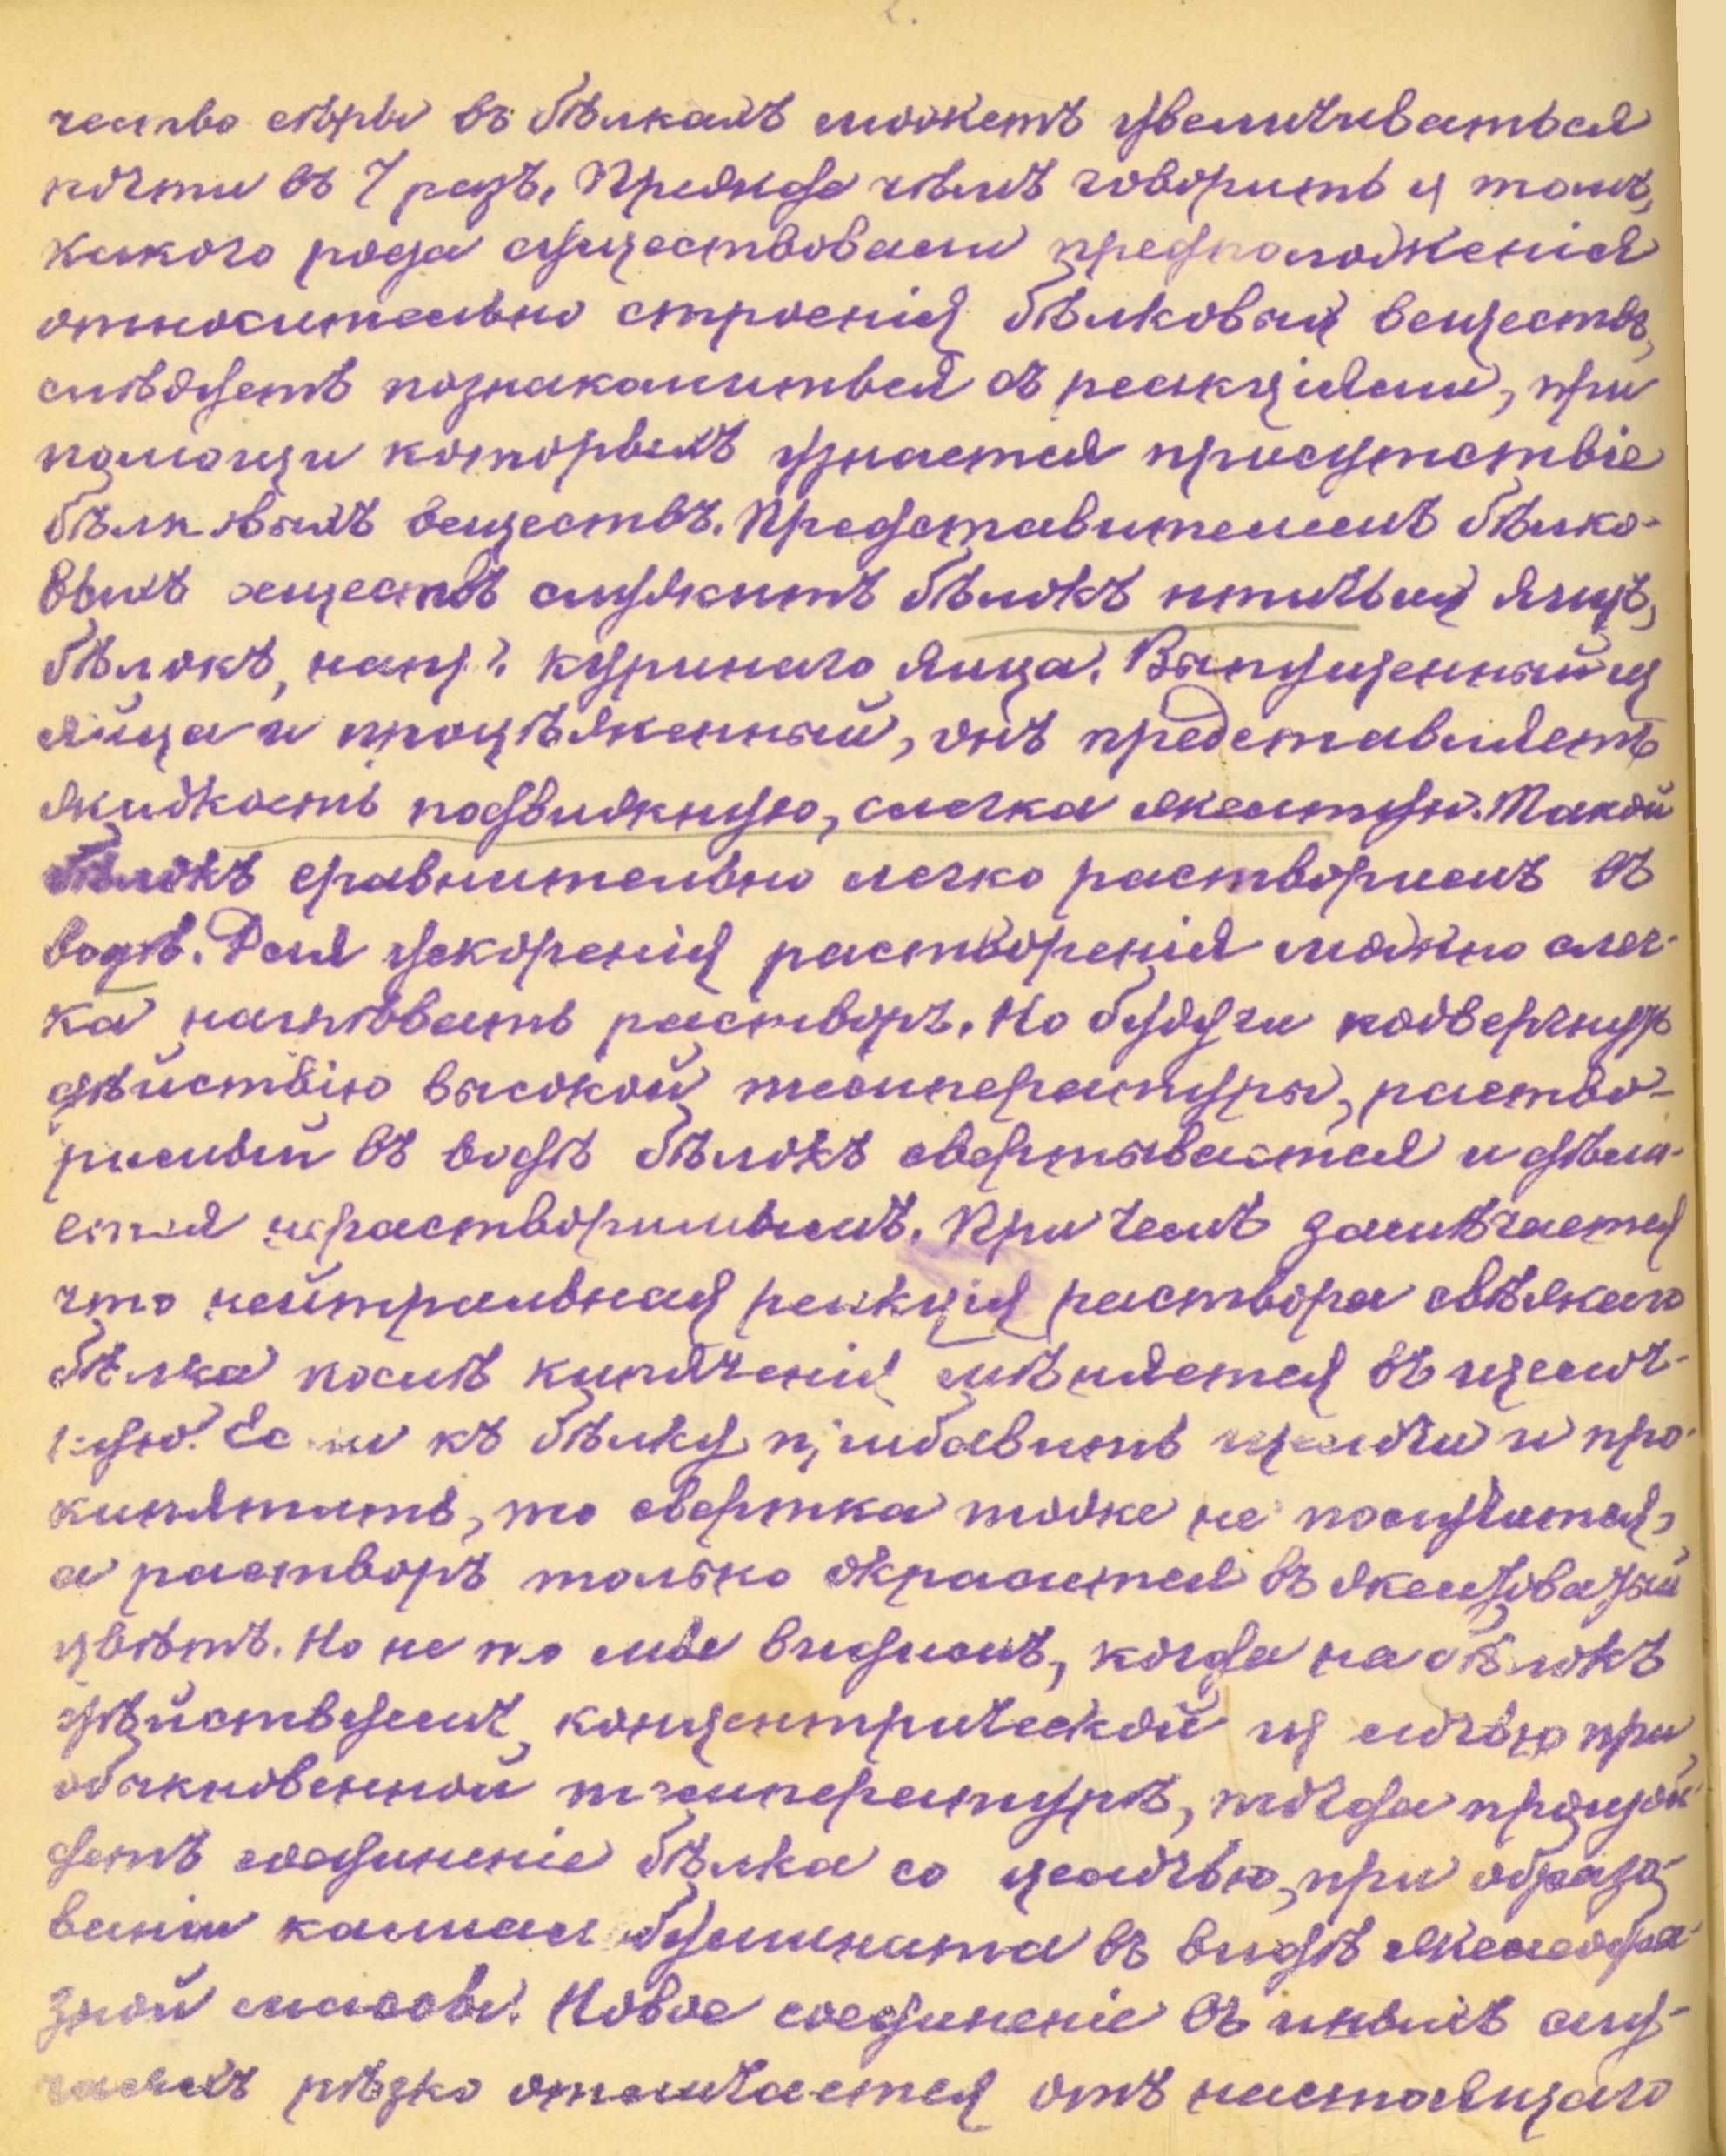 2.
чество сѣры въ бѣлкахъ можетъ увеличиваться
почти въ 7 разъ. Прежде чѣмъ говорить о томъ,
какого рода существовали предположенія
относительно строенія бѣлковыхъ веществъ,
слѣдуетъ познакомиться съ реакціями, при
помощи которыхъ узнается присутствіе
бѣлковыхъ веществъ. Представителемъ бѣлко-
выхъ веществъ служитъ бѣлокъ птичьихъ яицъ,
бѣлокъ, напр. куринаго яица. Выпущенный изъ
яйца и процѣженный, онъ представляетъ
жидкость подвижную, слегка желтую. Такой
бѣлокъ сравнительно легко растворимъ въ
водѣ. Для ускоренія растворенія можно слег-
ка нагрѣвать растворъ. Но будучи подвергнутъ
дѣйствію высокой температуры, раство-
римый въ водѣ бѣлокъ свертывается и дѣла-
ется нерастворимымъ. При чемъ замѣчается
что нейтральная реакція раствора свѣжаго
бѣлка послѣ кипяченія мѣняется въ щелоч-
ную. Если къ бѣлку прибавить щелочи и про-
кипятить, то свертка тоже не получится,
а растворъ только окрасится въ желтоватый
цвѣтъ. Но не то мы видимъ, когда на бѣлокъ
дѣйствуемъ концентрической щелочью при
обыкновенной температурѣ, тогда произой-
детъ соединеніе бѣлка со щелочью, при образо-
ваніи калиальбумината въ видѣ желеобра-
зной массы. Новое соединеніе въ иныхъ слу-
чаяхъ рѣзко отличается отъ настоящаго